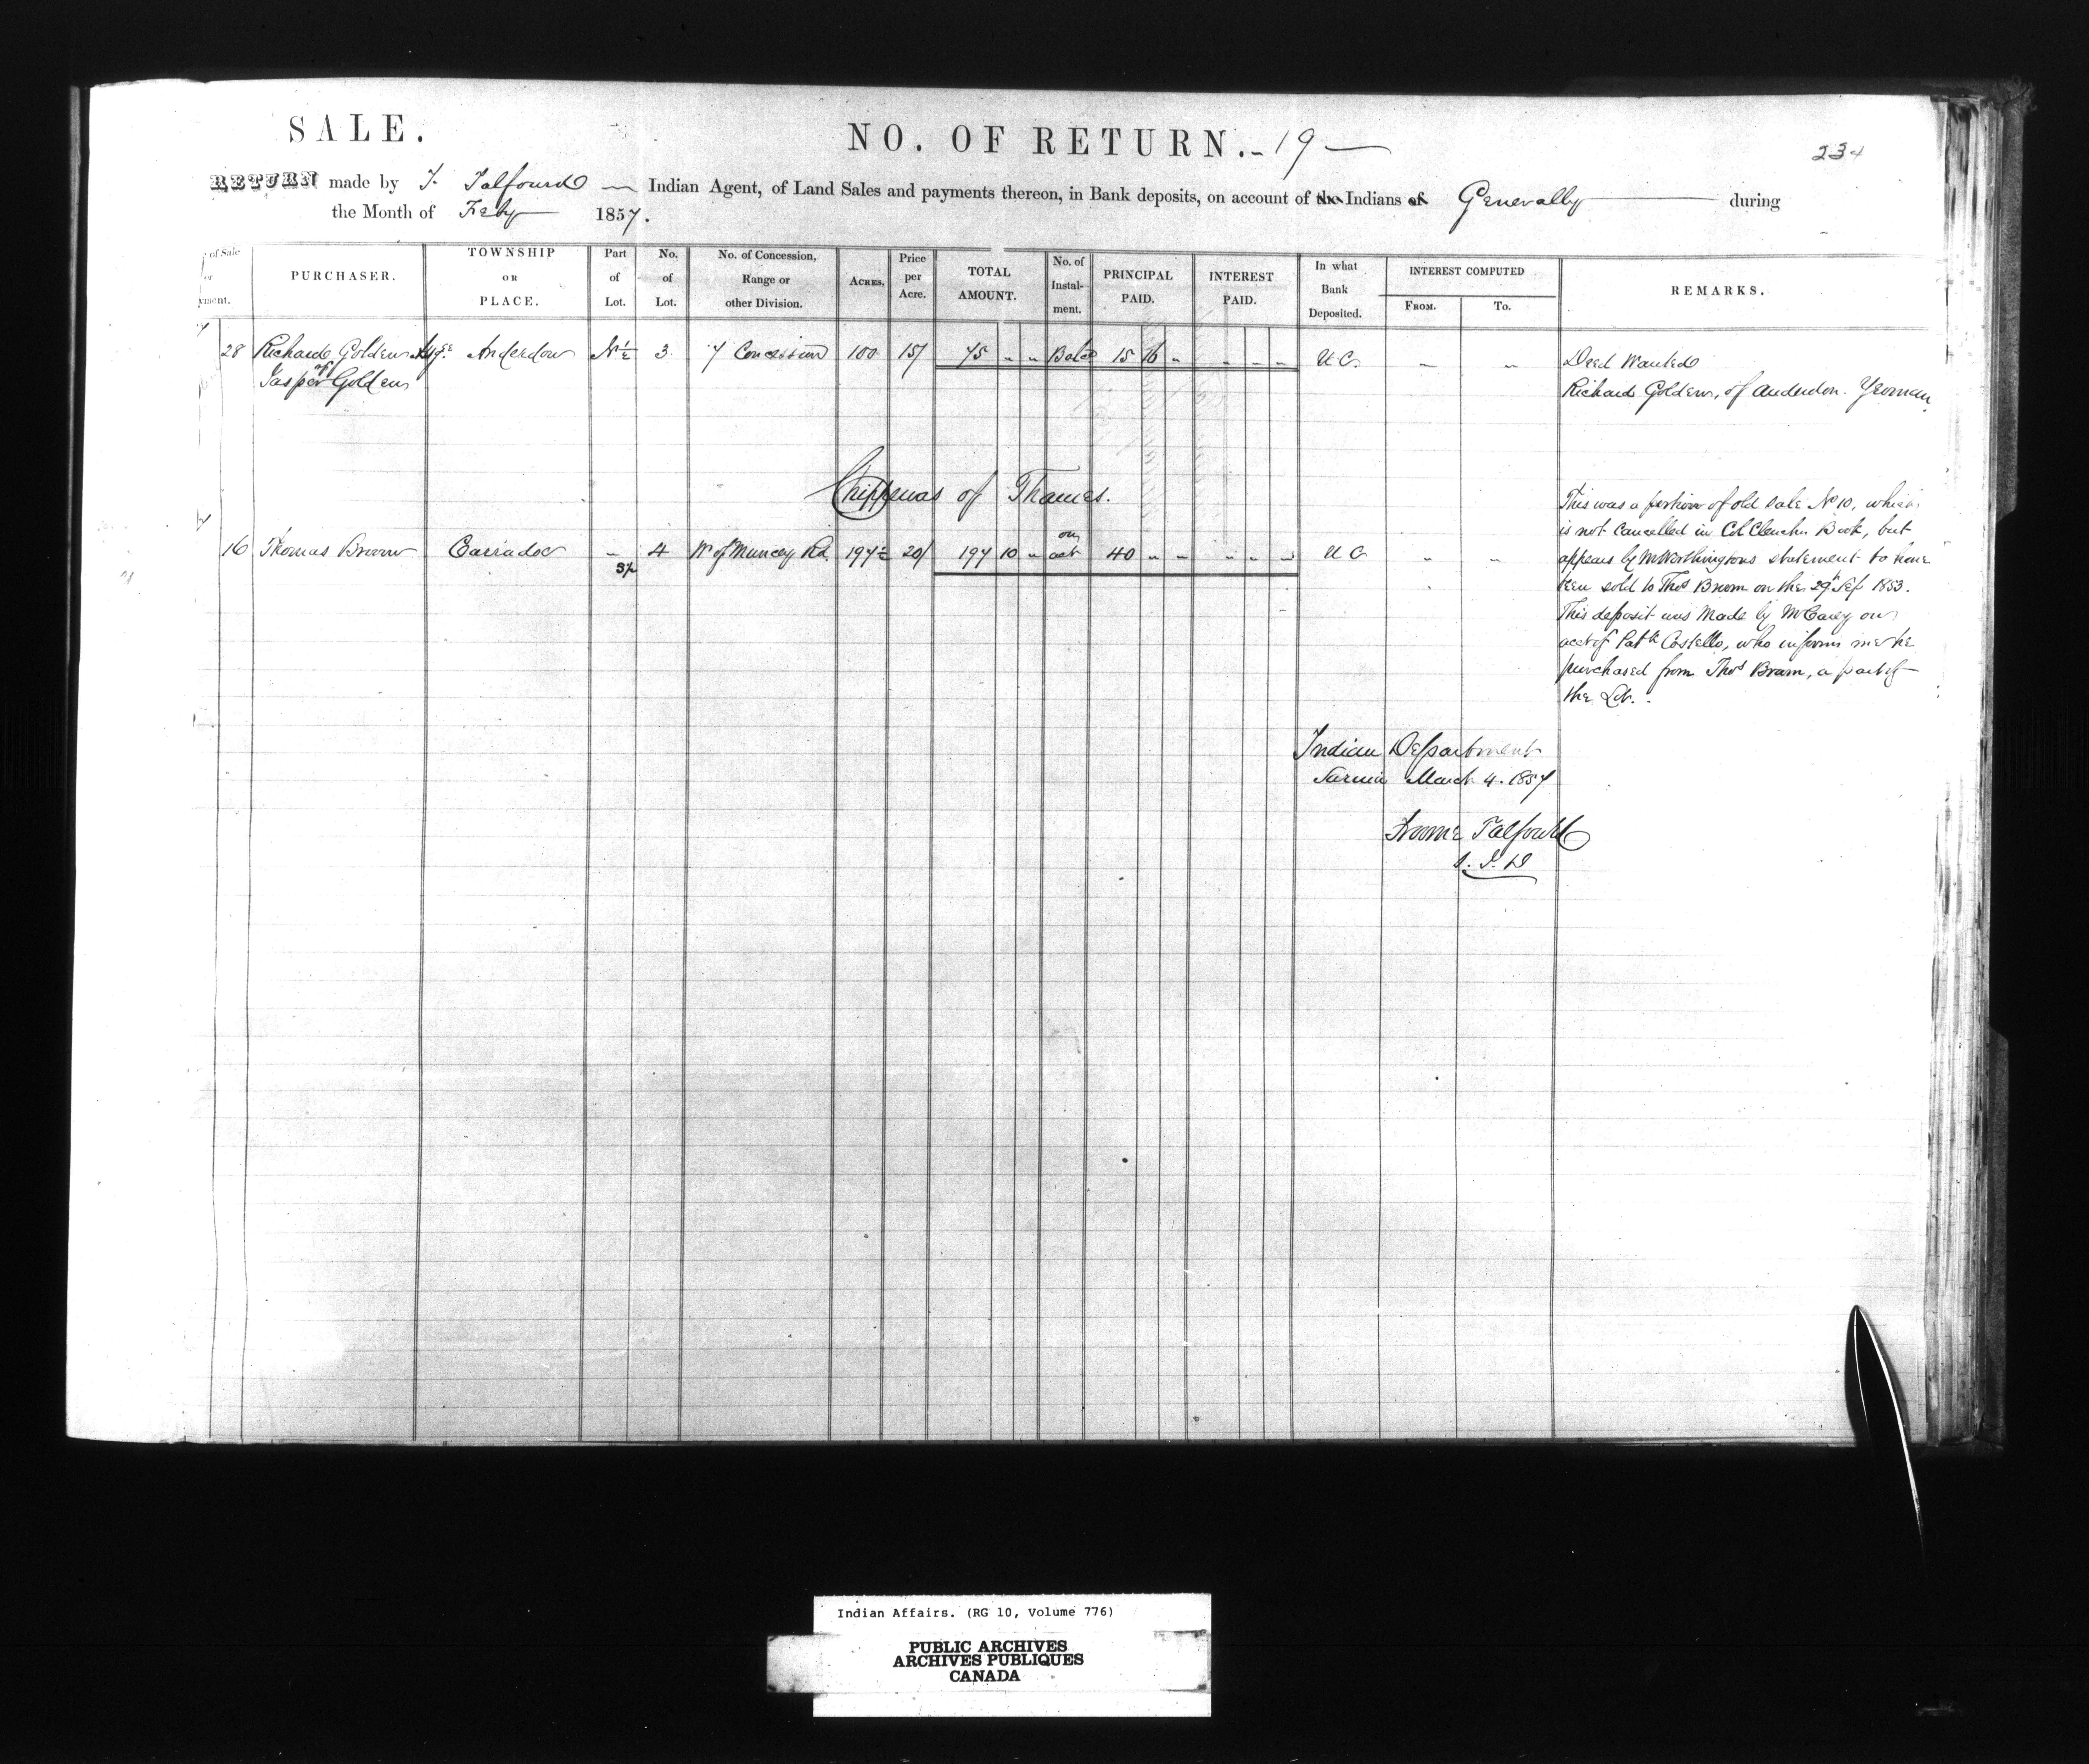 SALE.
NO. OF RETURN. - 19 -
234
RETURN made by F. Talfourd Indian Agent, of Land Sales and payments thereon, in Bank deposits, on account of the Indians of Generally during
the Month of Feby 1857.
of Sale or yment. PURCHASER. TOWNSHIP OR PLACE. Part of Lot. No. of Lot. No. of Concession, Range or other Division. ACRES. Price per Acre. TOTAL AMOUNT. No. of Instalment. PRINCIPAL PAID. INTEREST PAID. In what Bank Deposited. INTEREST COMPUTED FROM. TO. REMARKS.
28 Richard Golden Asgee Anderdon N½ 3 7 Concession 100 15/ 75 " " Balce 15 16 " " " " U C. " " Deed Wanted
of Jasper Golden
Richard Golden, of Anderdon. Yeoman
Chippewas of Thames.
16 Thomas Broom Carradoc - 4 W of Muncey Rd. 197½ 20/ 197 10 " on act 40 " " " " " U C " "
37
This was a portion of old sale No 10, which
is not cancelled in Col Clench's Book, but
appears by Mr Worthingtons statement to have
been sold to Thos Broom on the 29th Sep 1853.
This deposit was made by Mr Carey on
acct of Patk Costello, who informs me he
purchased from Thos Broom, a part of
the Lot.
Indian Department
Sarnia March 4. 1857
Froome Talfourd
S. I. D
Indian Affairs. (RG 10, Volume 776)
PUBLIC ARCHIVES
ARCHIVES PUBLIQUES
CANADA